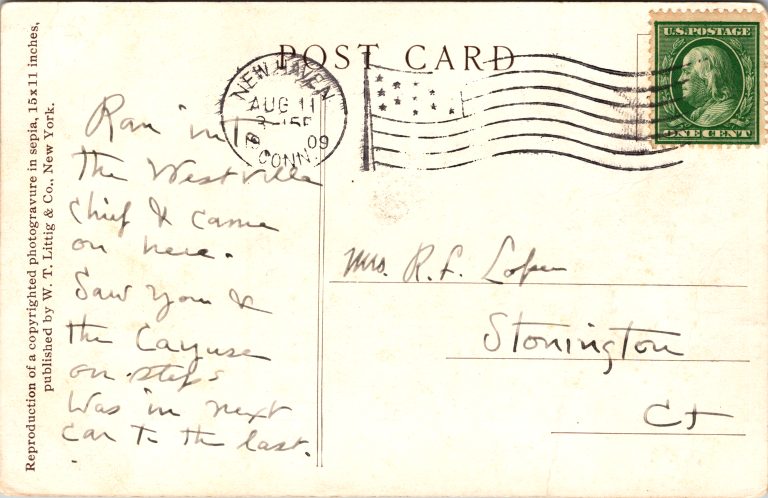 POST CARD
U.S. POSTAGE
ONE CENT
NEW HAVEN
AUG 11
09
CONN.
Reproduction of a copyrighted photogravure in sepia, 15x11 inches,
published by W. T. Littig & Co., New York.
Ran in
the Westville
chief & came
on here.
Saw you &
the Cayuse
on steps
Was in next
car to the last.
Mrs. R. F. Loper
Stonington
Ct